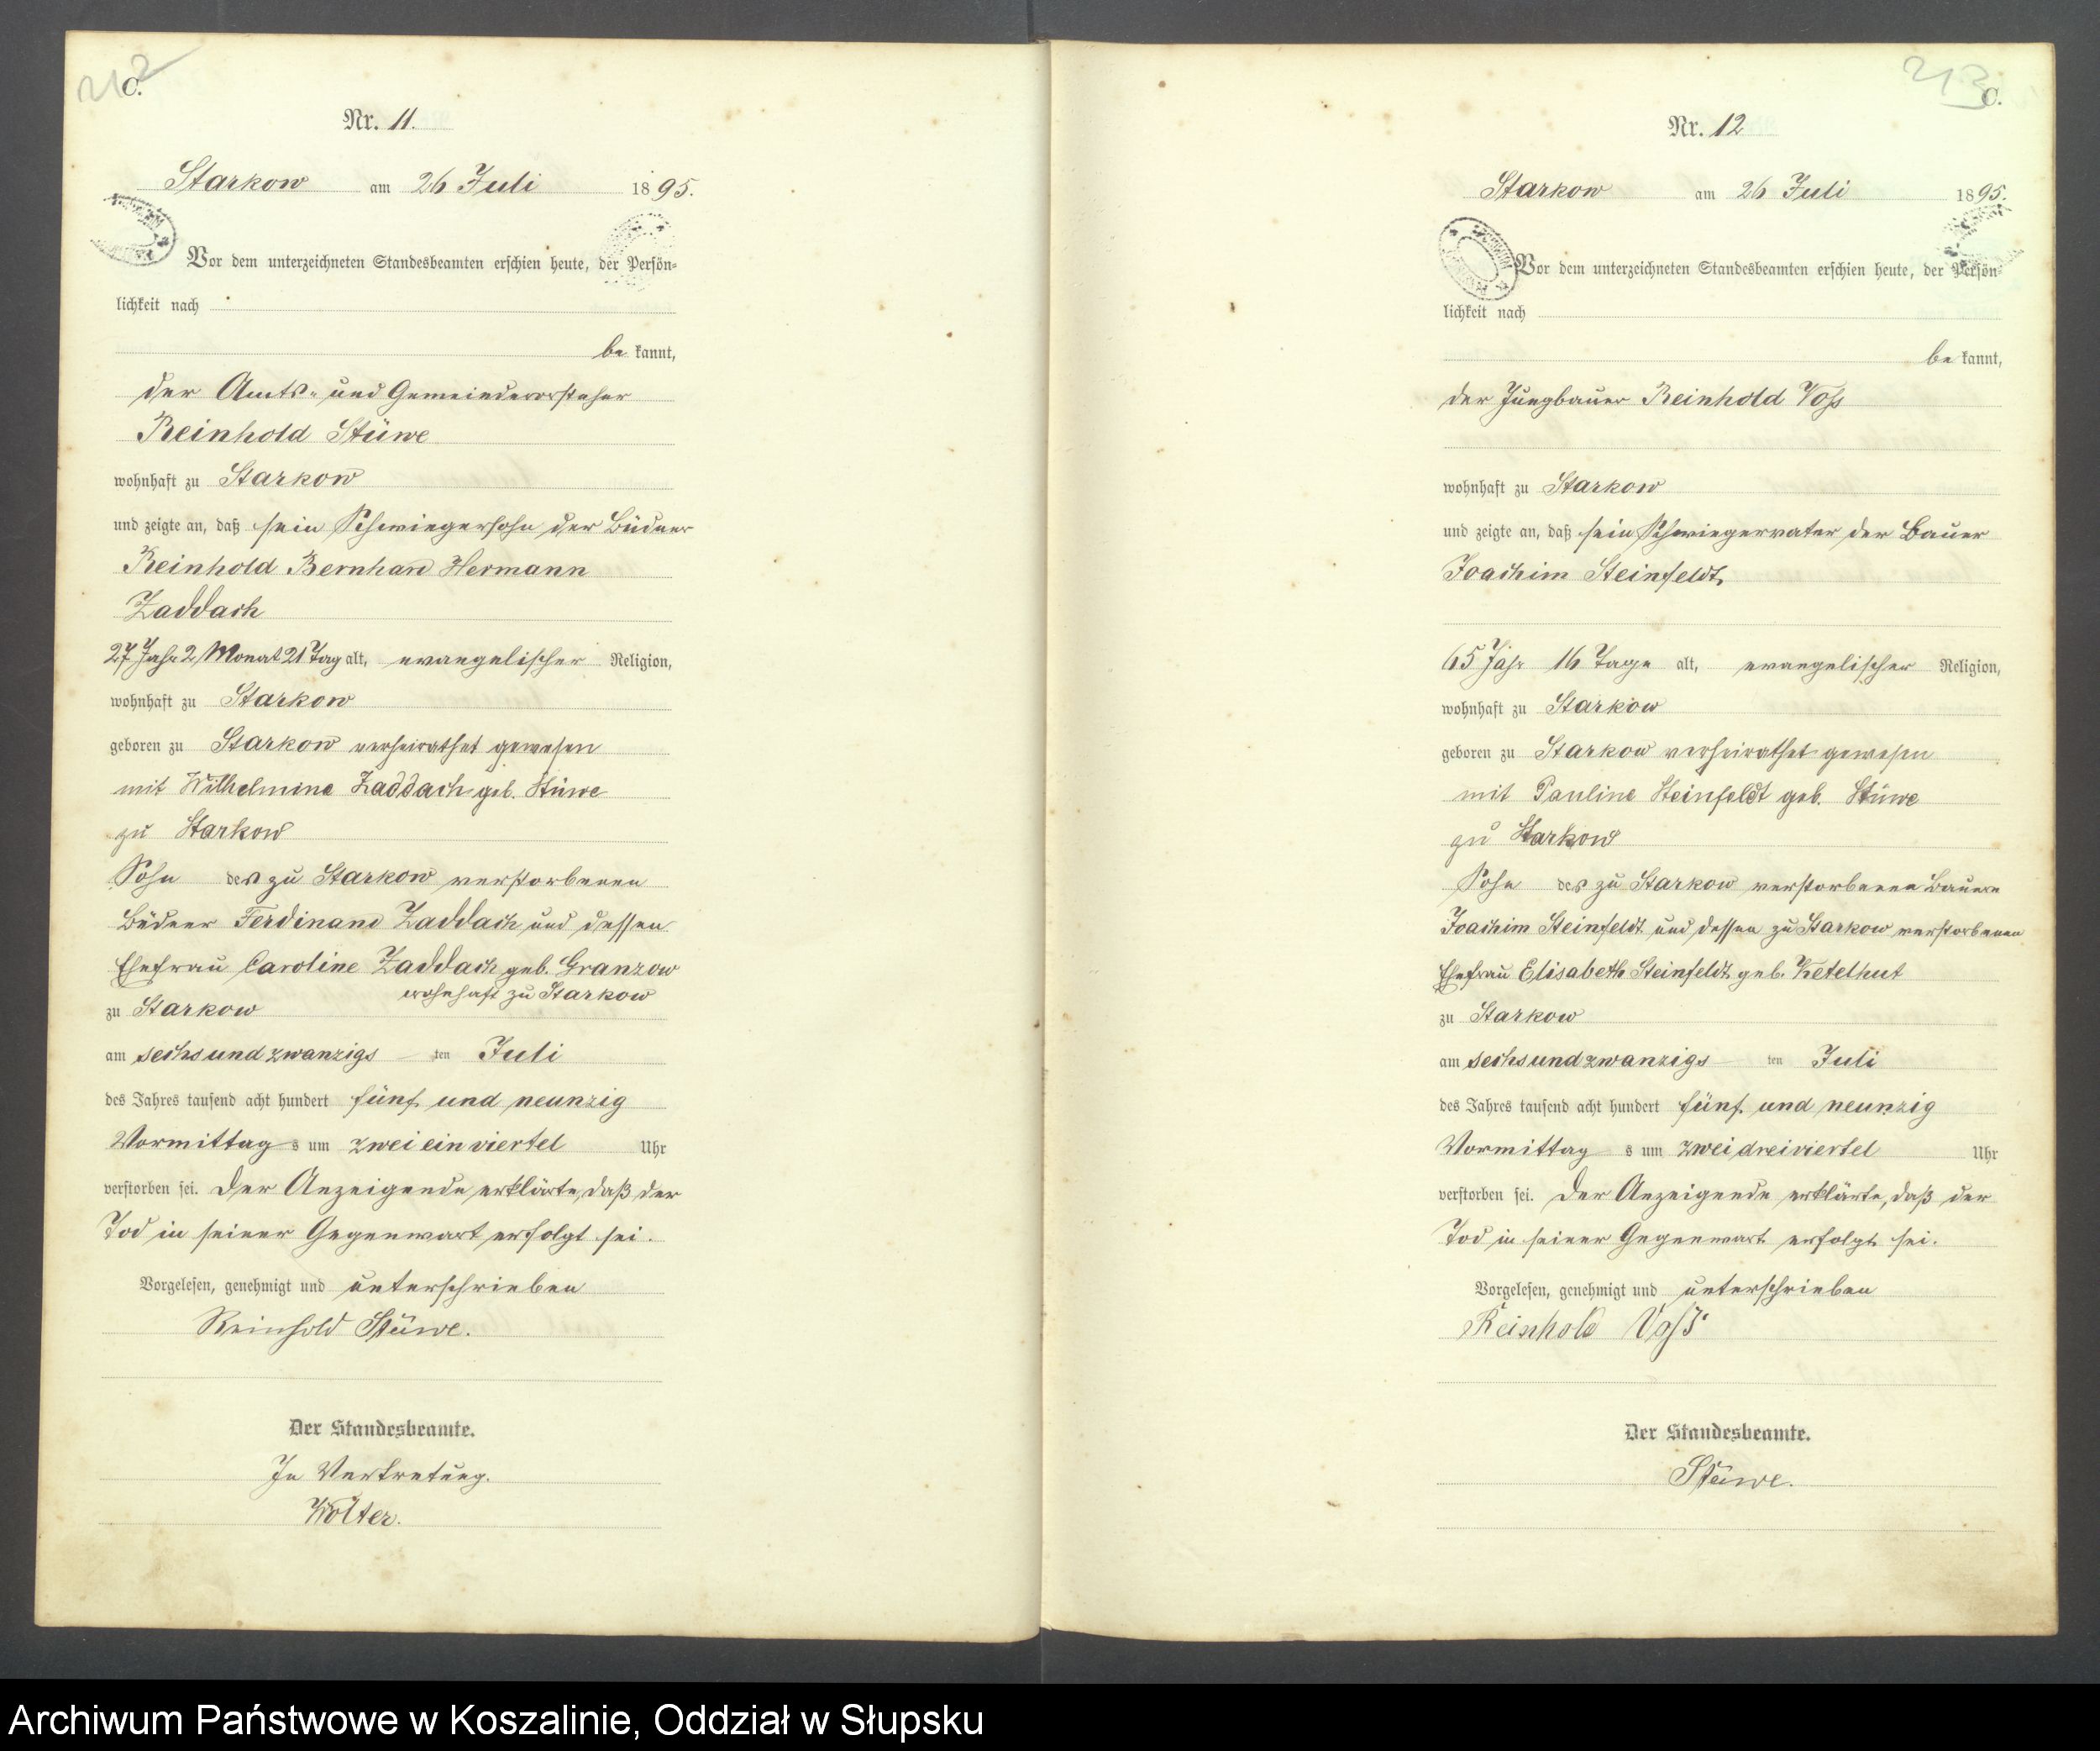 212
C.
Nr. 11.
Starkow am 26 Juli 1895.
Vor dem unterzeichneten Standesbeamten erschien heute, der Persön-
lichkeit nach
be kannt,
der Amts- und Gemeindevorsteher
Reinhold Stüwe
wohnhaft zu Starkow
und zeigte an, daß sein Schwiegersohn der Büdner
Reinhold Bernhard Hermann
Zaddach
27 Jahr 2 Monat 21 Tag alt, evangelischer Religion,
wohnhaft zu Starkow
geboren zu Starkow verheirathet gewesen
mit Wilhelmine Zaddach geb. Stüwe
zu Starkow
Sohn des zu Starkow verstorbenen
Büdner Ferdinand Zaddach und dessen
Ehefrau Caroline Zaddach geb. Granzow
wohnhaft zu Starkow
zu Starkow
am sechsundzwanzigs ten Juli
des Jahres tausend acht hundert fünf und neunzig
Vormittag s um zwei ein viertel Uhr
verstorben sei. Der Anzeigende erklärte, daß der
Tod in seiner Gegenwart erfolgt sei.
Vorgelesen, genehmigt und unterschrieben
Reinhold Stüwe.
Der Standesbeamte.
In Vertretung.
Wolter.
213
C.
Nr. 12
Starkow am 26 Juli 1895.
Vor dem unterzeichneten Standesbeamten erschien heute, der Persön-
lichkeit nach
be kannt,
der Jungbauer Reinhold Voss
wohnhaft zu Starkow
und zeigte an, daß sein Schwiegervater der Bauer
Joachim Steinfeldt,
65 Jahr 16 Tage alt, evangelischer Religion,
wohnhaft zu Starkow
geboren zu Starkow verheirathet gewesen
mit Pauline Steinfeldt geb. Stüwe
zu Starkow
Sohn des zu Starkow verstorbenen Bauern
Joachim Steinfeldt und dessen zu Starkow verstorbenen
Ehefrau Elisabeth Steinfeldt geb. Ketelhut
zu Starkow
am sechsundzwanzigs ten Juli
des Jahres tausend acht hundert fünf und neunzig
Vormittag s um zwei dreiviertel Uhr
verstorben sei. Der Anzeigende erklärte, daß der
Tod in seiner Gegenwart erfolgt sei.
Vorgelesen, genehmigt und unterschrieben
Reinhold Voß
Der Standesbeamte.
Stüwe.
Archiwum Państwowe w Koszalinie, Oddział w Słupsku